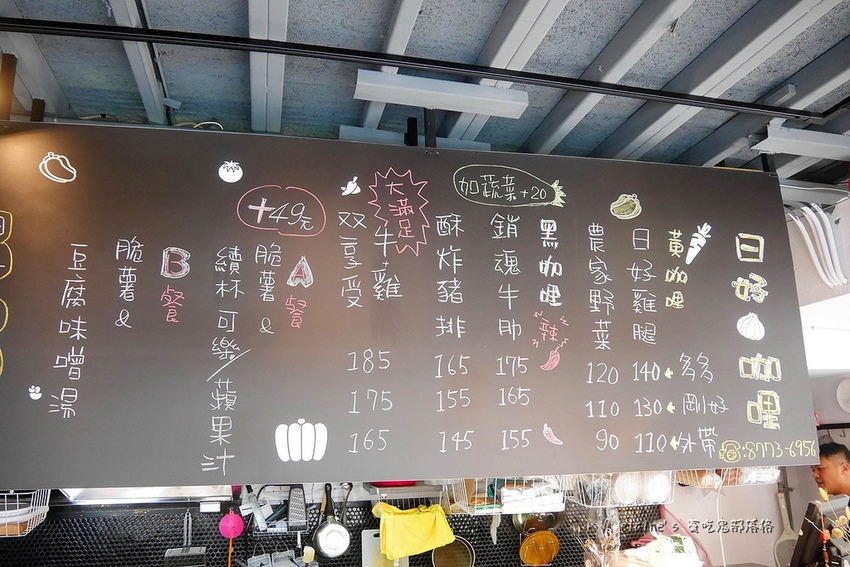 日好咖哩
☎:8773-6956
黃咖哩
日好雞腿
140 ← 多多
130 ← 剛好
110 ← 外帶
農家野菜
120
110
90
加蔬菜+20
黑咖哩
辣
銷魂牛肋
175
165
155
酥炸豬排
165
155
145
大滿足
牛+雞
双享受
185
175
165
+49元
A餐
脆薯&
續杯可樂/蘋果汁
B餐
脆薯&
豆腐味噌湯
貪吃鬼部落格